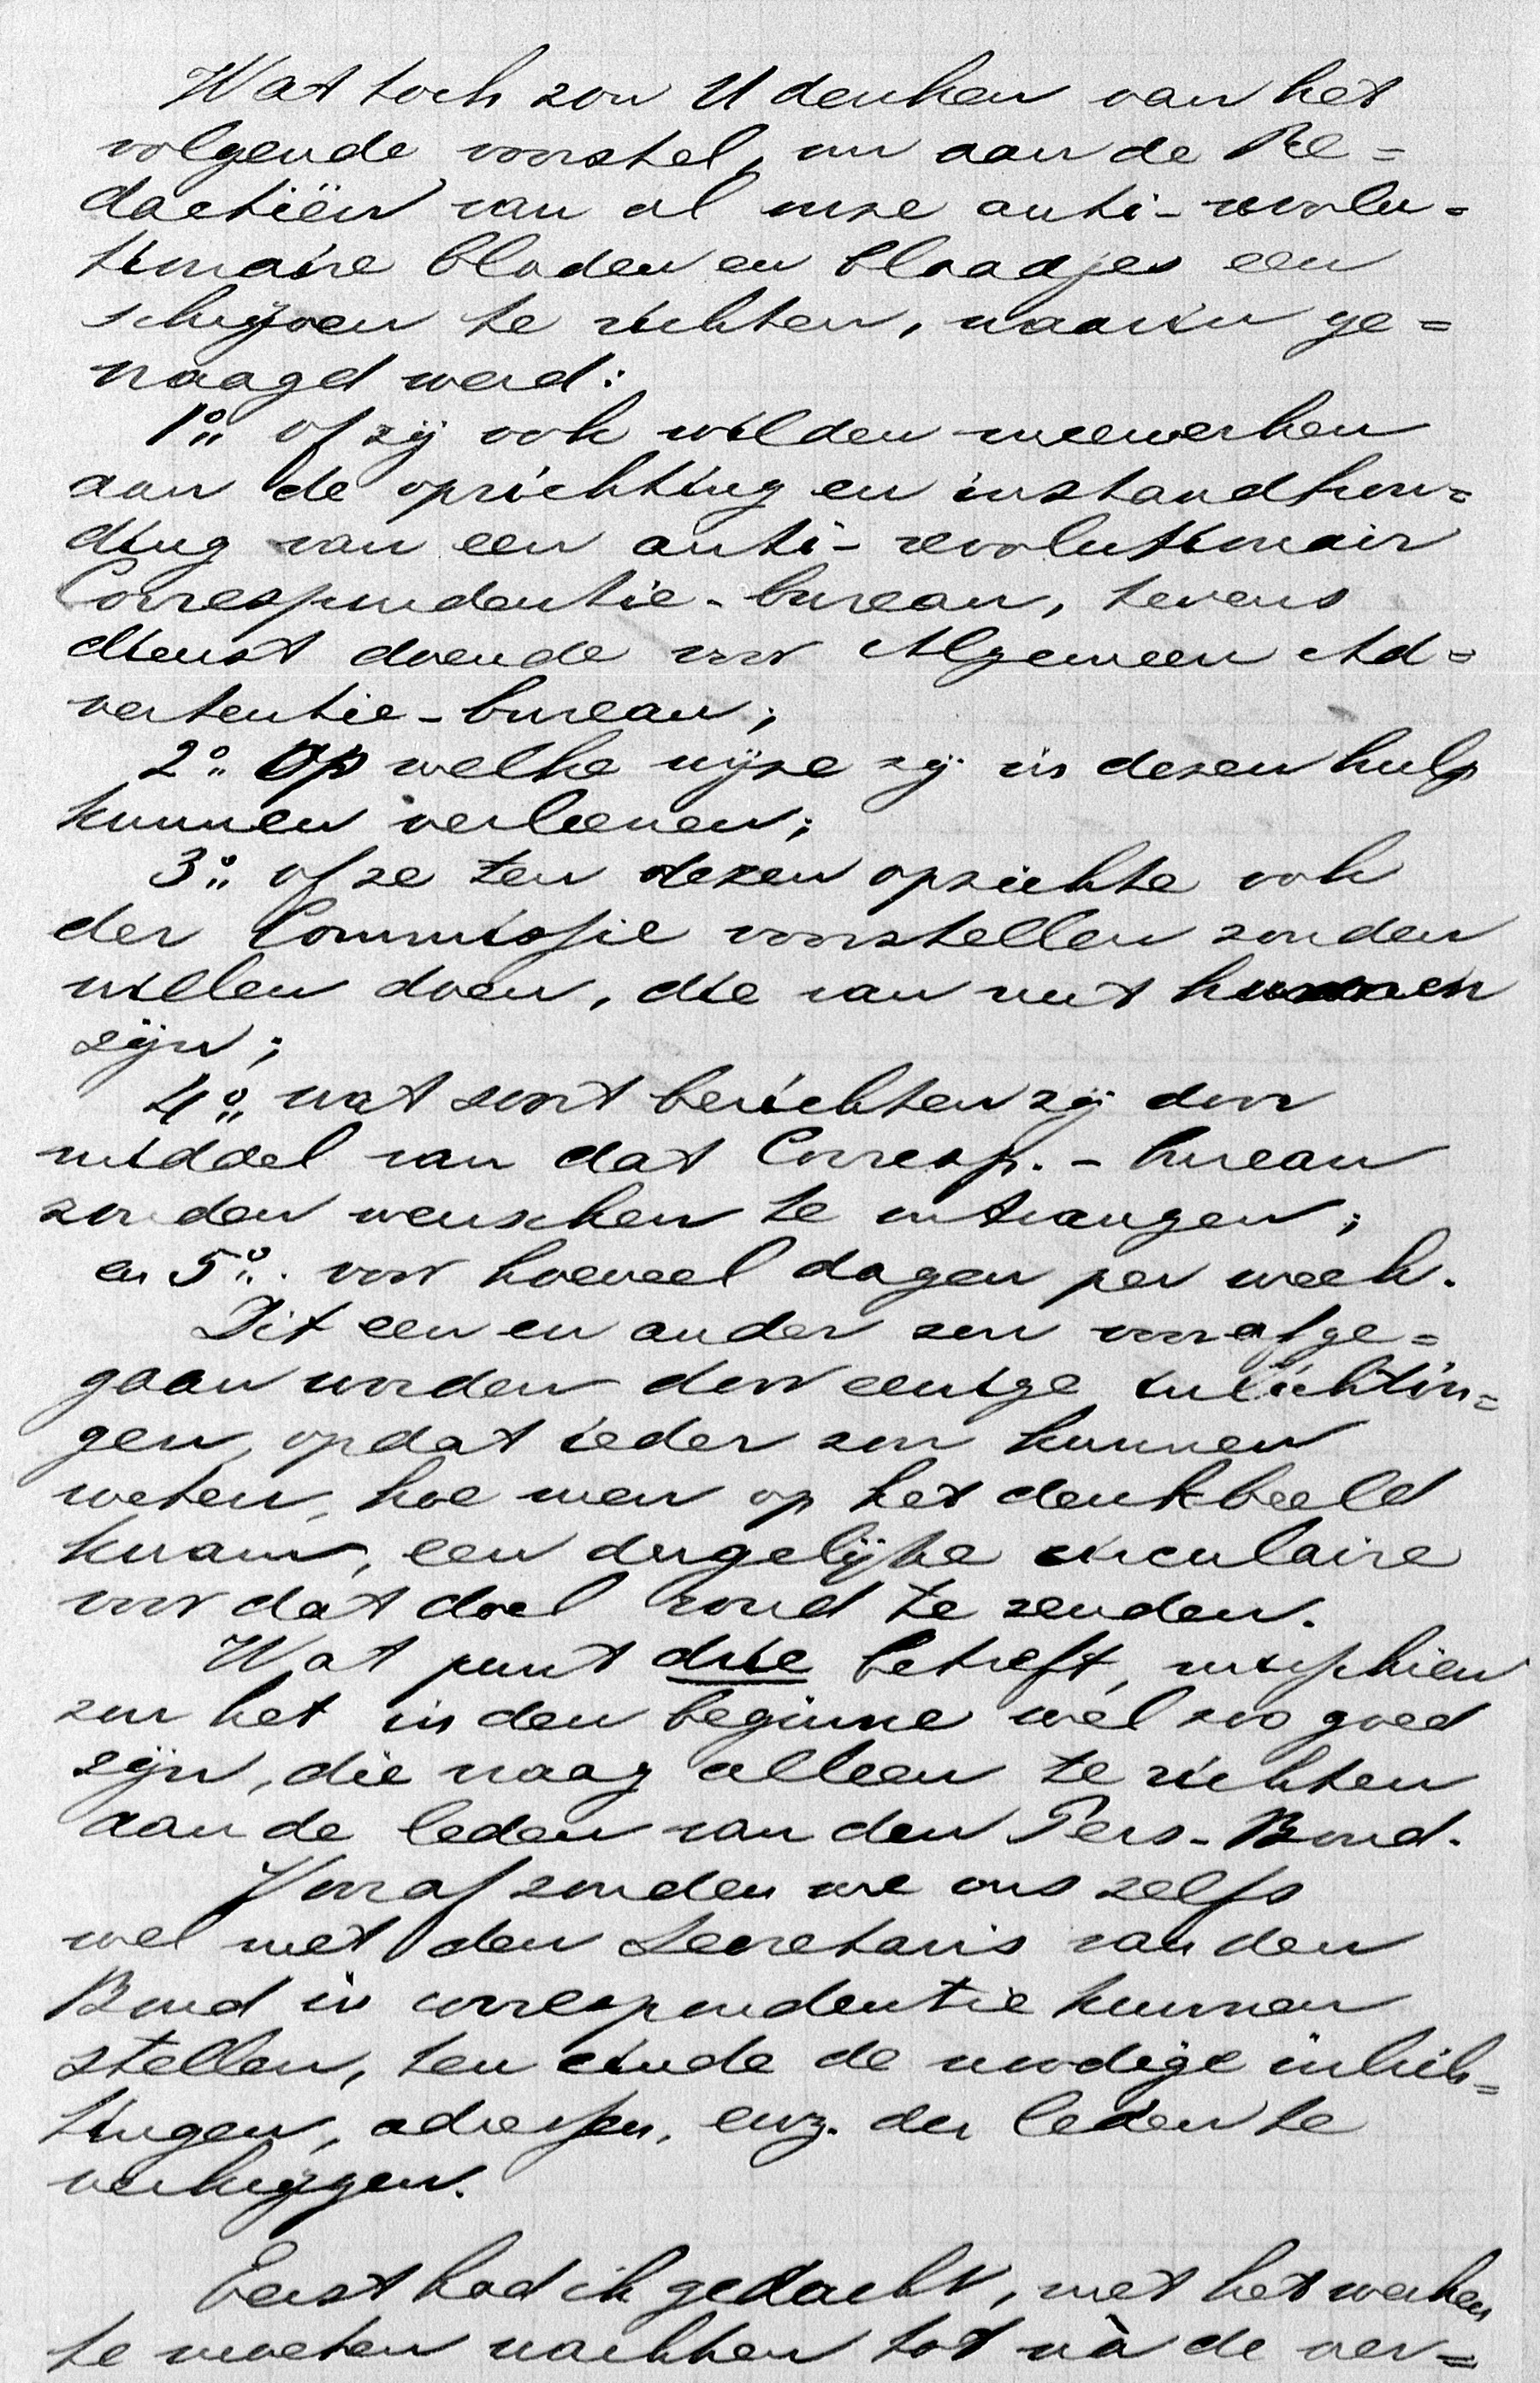 Wat toch zou U denken van het
volgende voorstel, om aan de Re=
dactiën van al onze anti-revolu=
tionaire bladen en blaadjes een
schrijven te richten, waarin ge=
vraagd werd:
1o. of zij ook wilden meewerken
aan de oprichting en instandhou=
ding van een anti-revolutionair
Correspondentie-bureau, tevens
dienst doende voor Algemeen Ad=
vertentie-bureau;
2o. Op welke wijze zij in dezen hulp
kunnen verleenen;
3o. of ze ten dezen opzichte ook
der Commissie voorstellen zouden
willen doen, die van nut kunnen
zijn;
4o. wat soort berichten zij door
middel van dat Corresp.-bureau
zouden wenschen te ontvangen;
en 5o. voor hoeveel dagen per week.
Dit een en ander zou voorafge=
gaan worden door eenige inlichtin=
gen, opdat ieder zou kunnen
weten, hoe men op het denkbeeld
kwam, een dergelijke circulaire
voor dat doel rond te zenden.
Wat punt drie betreft, misschien
zou het in den beginne wel zoo goed
zijn, die vraag alleen te richten
aan de leden van den Pers-Bond.
Vooraf zouden we ons zelfs
wel met den Secretaris van den
Bond in correspondentie kunnen
stellen, ten einde de noodige inlich=
tingen, adressen, enz. der leden te
verkrijgen.
Eerst had ik gedacht, met het werken
te moeten wachten tot nà de ver=